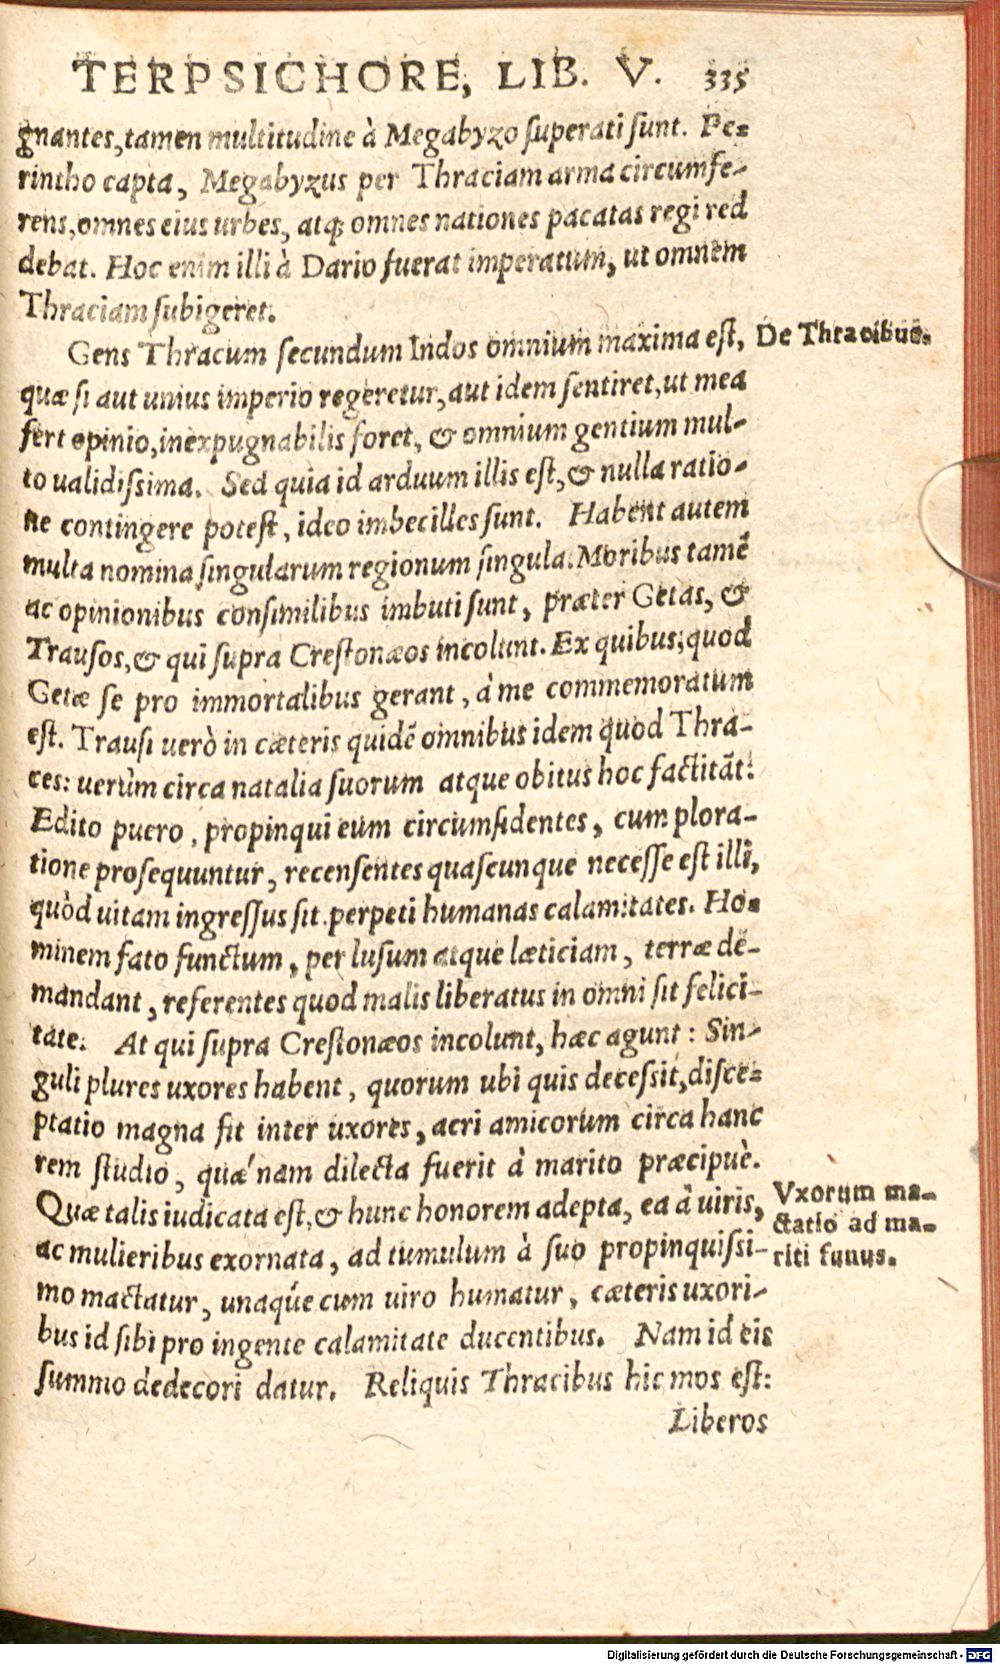 TERPSICHORE, LIB. V. 335
gnantes, tamen multitudine à Megabyzo superati sunt. Pe-
rintho capta, Megabyzus per Thraciam arma circumfe-
rens, omnes eius urbes, atq; omnes nationes pacatas regi red
debat. Hoc enim illi à Dario fuerat imperatum, ut omnem
Thraciam subigeret.
Gens Thracum secundum Indos omnium maxima est,
De Thracibus.
quæ si aut unius imperio regeretur, aut idem sentiret, ut mea
fert opinio, inexpugnabilis foret, & omnium gentium mul-
to ualidissima. Sed quia id arduum illis est, & nulla ratio-
ne contingere potest, ideo imbecilles sunt. Habent autem
multa nomina singularum regionum singula. Moribus tamẽ
ac opinionibus consimilibus imbuti sunt, præter Getas, &
Trausos, & qui supra Crestonæos incolunt. Ex quibus, quod
Getæ se pro immortalibus gerant, à me commemoratum
est. Trausi uerò in cæteris quidẽ omnibus idem quod Thra-
ces: uerùm circa natalia suorum atque obitus hoc factitãt:
Edito puero, propinqui eum circumsidentes, cum plora-
tione prosequuntur, recensentes quascunque necesse est illi,
quòd uitam ingressus sit, perpeti humanas calamitates. Ho-
minem fato functum, per lusum atque læticiam, terræ de-
mandant, referentes quod malis liberatus in omni sit felici-
tate. At qui supra Crestonæos incolunt, hæc agunt: Sin-
guli plures uxores habent, quorum ubi quis decessit, disce-
ptatio magna fit inter uxores, acri amicorum circa hanc
rem studio, quæ´nam dilecta fuerit à marito præcipuè.
Quæ talis iudicata est, & hunc honorem adepta, ea à uiris,
ac mulieribus exornata, ad tumulum à suo propinquissi-
mo mactatur, unaq́ue cum uiro humatur, cæteris uxori-
bus id sibi pro ingente calamitate ducentibus. Nam id eis
summo dedecori datur. Reliquis Thracibus hic mos est:
Vxorum ma-
ctatio ad ma-
riti funus.
Liberos
Digitalisierung gefördert durch die Deutsche Forschungsgemeinschaft - DFG